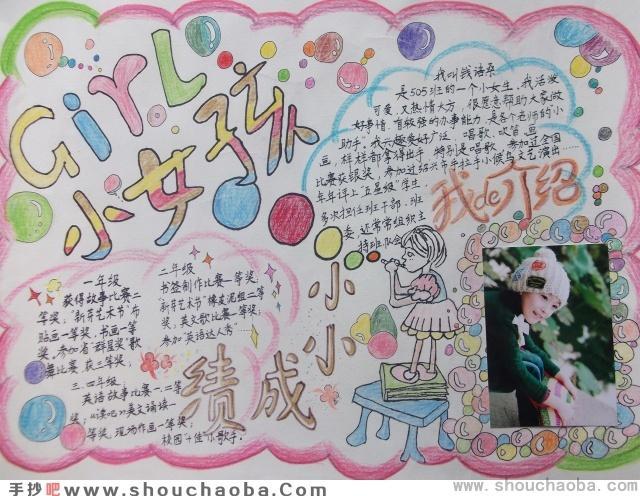 GirL
小女孩
我叫钱语桑
是505班的一个小女生,我活泼
可爱,又热情大方,很愿意帮助大家做
好事情,有较强的办事能力,是各个老师的小
"助手"。我兴趣爱好广泛,唱歌、吹笛、画
画,样样都拿得出手,特别是唱歌,参加过全国
比赛获银奖,参加过绍兴市手拉手小候鸟文艺演出……
年年评上"五星级"学生
多次担任班干部,班
委,还常常组织主
持班队会。
我de介绍
一年级
获得故事比赛二
等奖,"新芽艺术节"布
贴画一等奖,书画一等
奖,参加省"群星奖"歌
舞比赛,获三等奖;
二年级
书签制作比赛一等奖,
"新芽艺术节"橡皮泥组二等
奖,英文歌比赛一等奖,
参加"英语达人秀"……
三、四年级
英语故事比赛一、二等
奖,英文诵读一
等奖,现场作画一等奖;
校园"十佳"小歌手。
小小
成绩
手抄吧 www.shouchaoba.Com
www.shouchaoba.com